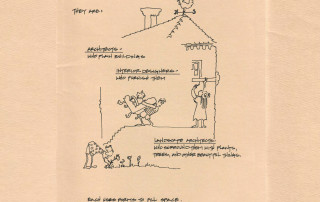 THEY ARE:
ARCHITECTS -
WHO PLAN BUILDINGS
INTERIOR DESIGNERS -
WHO FURNISH THEM
LANDSCAPE ARCHITECTS
WHO SURROUND THEM WITH PLANTS,
TREES, AND OTHER BEAUTIFUL THINGS.
EACH USES FORMS TO FILL SPACE.